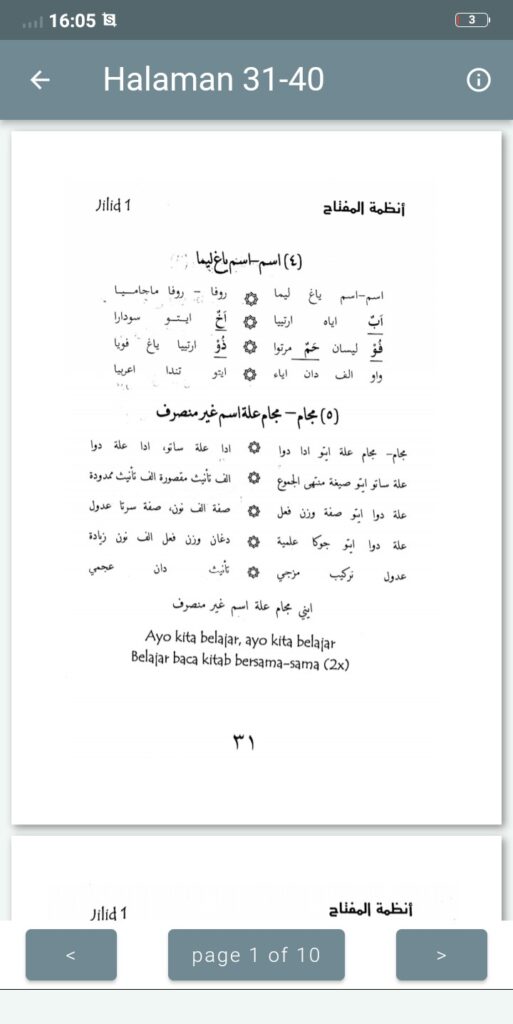 16:05
3
Halaman 31-40
Jilid 1 أنظمة المفتاح
(٤) اسم–اسم ياغ ليما
اسم–اسم ياغ ليما ۞ روفا – روفا ماجامــيــا
اَبٌ اياه ارتييا ۞ اَخٌ ايتــو سودارا
فُوْ ليسان حَمٌ مرتوا ۞ ذُوْ ارتييا ياغ فويا
واو الف دان اياء ۞ ايتو تندا اعرابيا
(٥) مجام – مجام علة اسم غير منصرف
مجام– مجام علة ايتو ادا دوا ۞ ادا علة ساتو، ادا علة دوا
علة ساتو ايتو صيغة منتهى الجموع ۞ الف تأنيث مقصورة الف تأنيث ممدودة
علة دوا ايتو صفة وزن فعل ۞ صفة الف نون، صفة سرتا عدول
علة دوا ايتو جوكا علمية ۞ دغان وزن فعل الف نون زيادة
عدول تركيب مزجي ۞ تأنيث دان عجمي
ايني مجام علة اسم غير منصرف
Ayo kita belajar, ayo kita belajar
Belajar baca kitab bersama-sama (2x)
٣١
Jilid 1 أنظمة المفتاح
< page 1 of 10 >